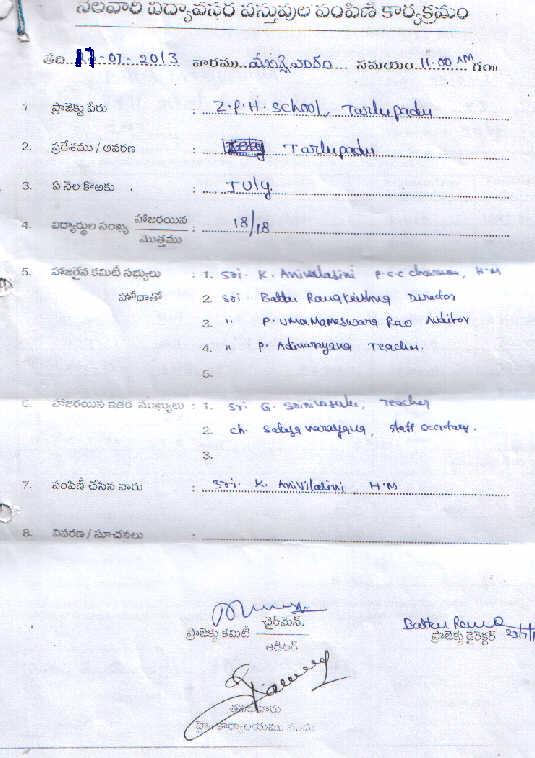 నెలవారి విద్యావసర వస్తువుల పంపిణీ కార్యక్రమం
తేది 17-07-2013 వారము సమయం 11.00 AM గం॥
1. ప్రాజెక్టు పేరు : Z.P.H. School, Tarlupadu
2. ప్రదేశము / ఆవరణ : Tarlupadu
3. ఏ నెల కొఱకు : July.
4. విద్యార్థుల సంఖ్య హాజరయిన / మొత్తము : 18/18
5. హాజరైన కమిటీ సభ్యులు : 1. Sri. K. Anivilasini P.C.C Chairman, H.M
హోదాతో 2. Sri. Battu Ramakrishna Director
3. " P. Uma Maheswara Rao Auditor
4. " P. Adinarayana Teacher.
5.
6. హాజరయిన ఇతర ముఖ్యులు : 1. Sri G. Srinivasulu, Teacher
2. Ch. Satyanarayana, Staff Secretary.
3.
7. పంపిణీ చేసిన వారు : Sri. K. Anivilasini H.M
8. వివరణ / సూచనలు :
ఛైర్మెన్.
ప్రాజెక్టు కమిటీ
ఆడిటర్
Battu Rama
ప్రాజెక్టు డైరెక్టర్